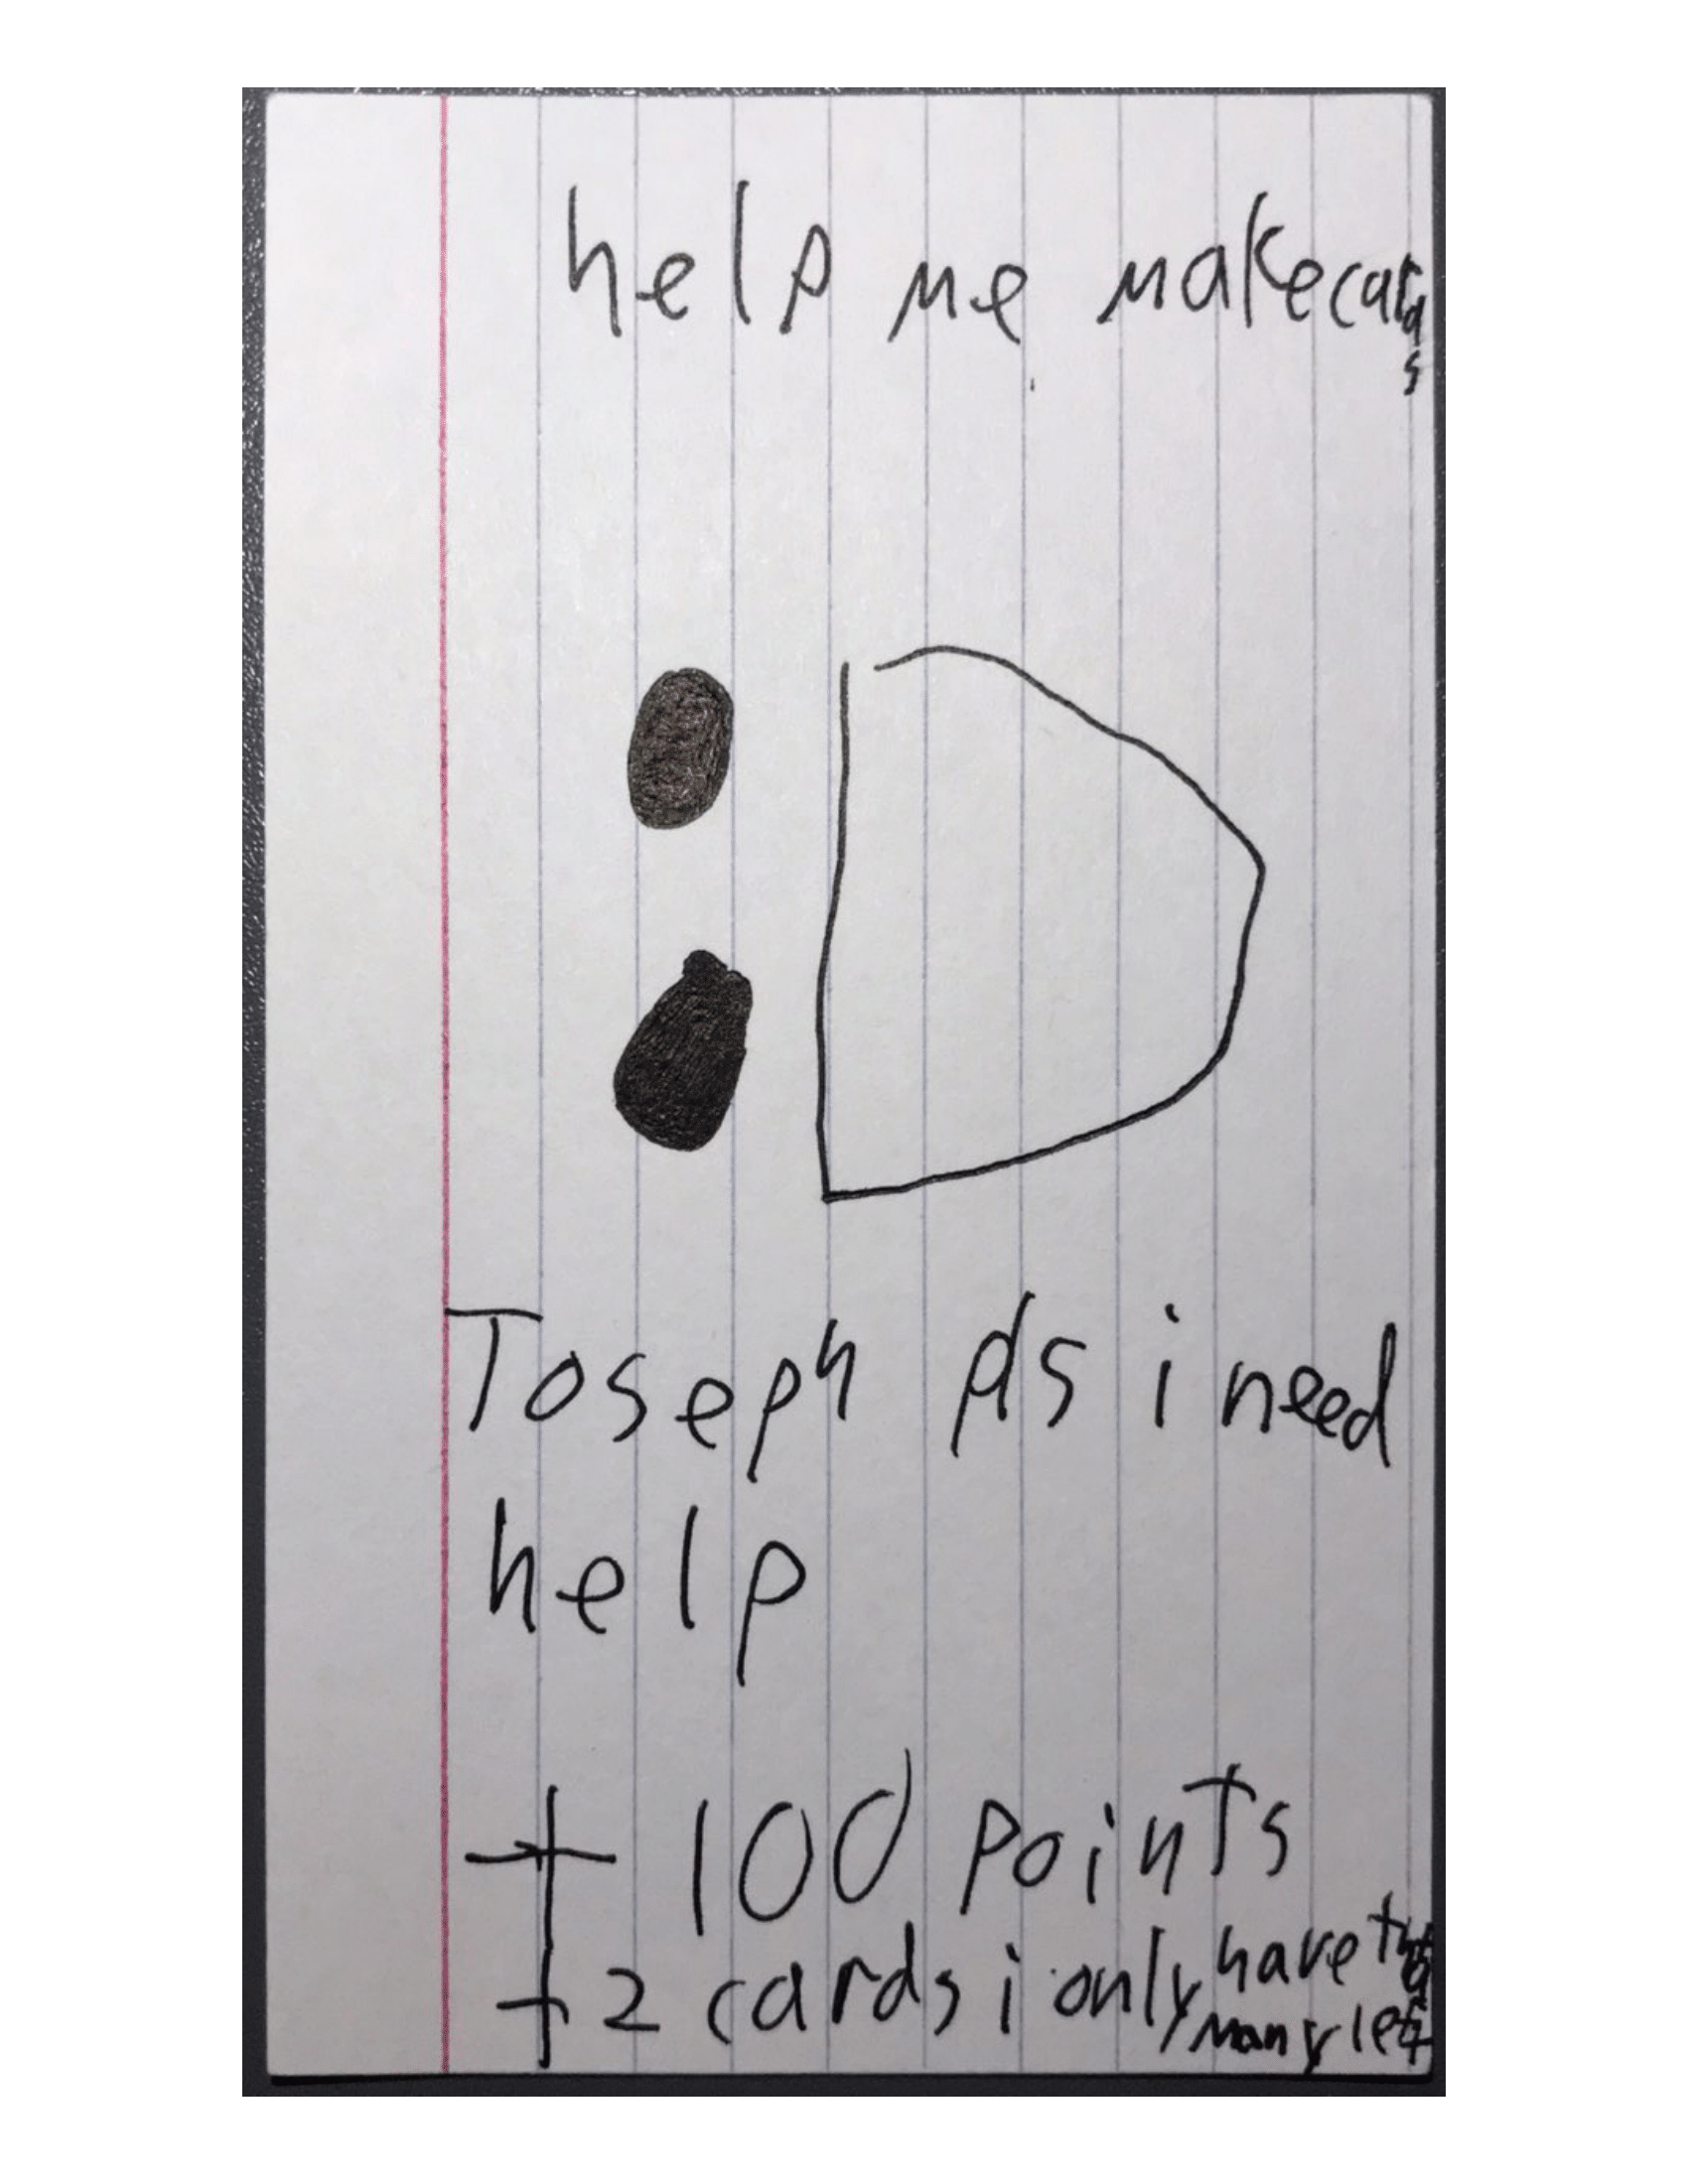 help me make cards
:D
Joseph ps i need
help
+ 100 points
+ 2 cards i only have that many left